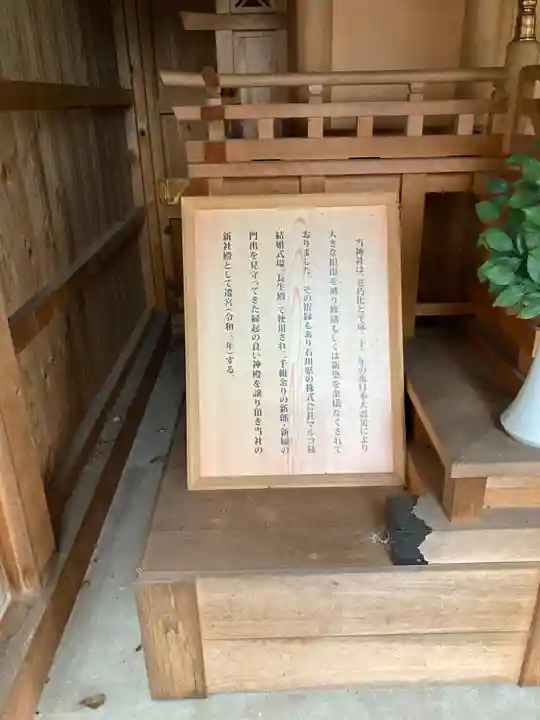 当神社は、老朽化と平成二十三年の東日本大震災により
大きな損傷を被り修繕もしくは新築を余儀なくされて
おりました。その折縁もあり石川県の株式会社マルコ様
結婚式場「長生殿」で使用され、千組余りの新郎・新婦の
門出を見守ってきた縁起の良い神殿を譲り頂き当社の
新社殿として遷宮(令和三年)する。